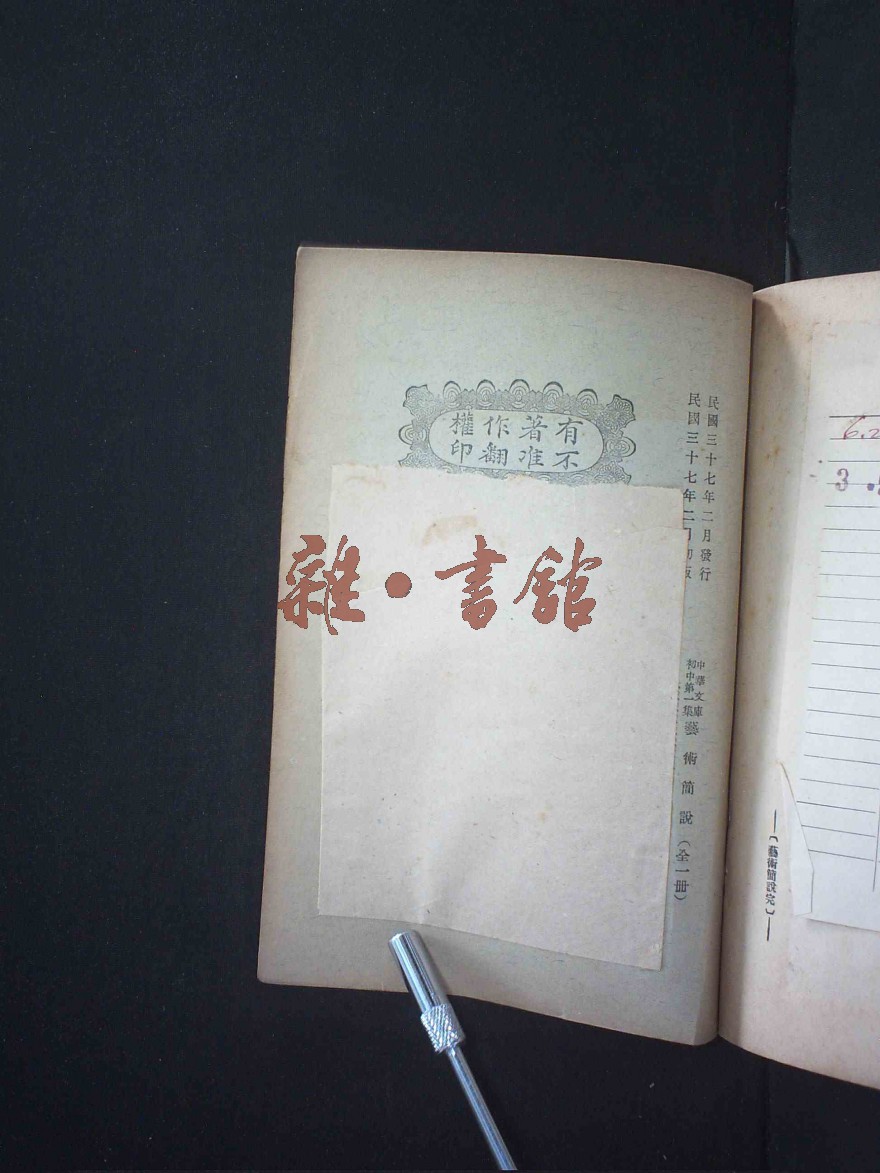 民國三十七年二月發行
民國三十七年二月初版
中華文庫
初中第一集
藝術簡說（全一冊）
有著作權
不准翻印
雜·書館
〔藝術簡說完〕
6.2
3